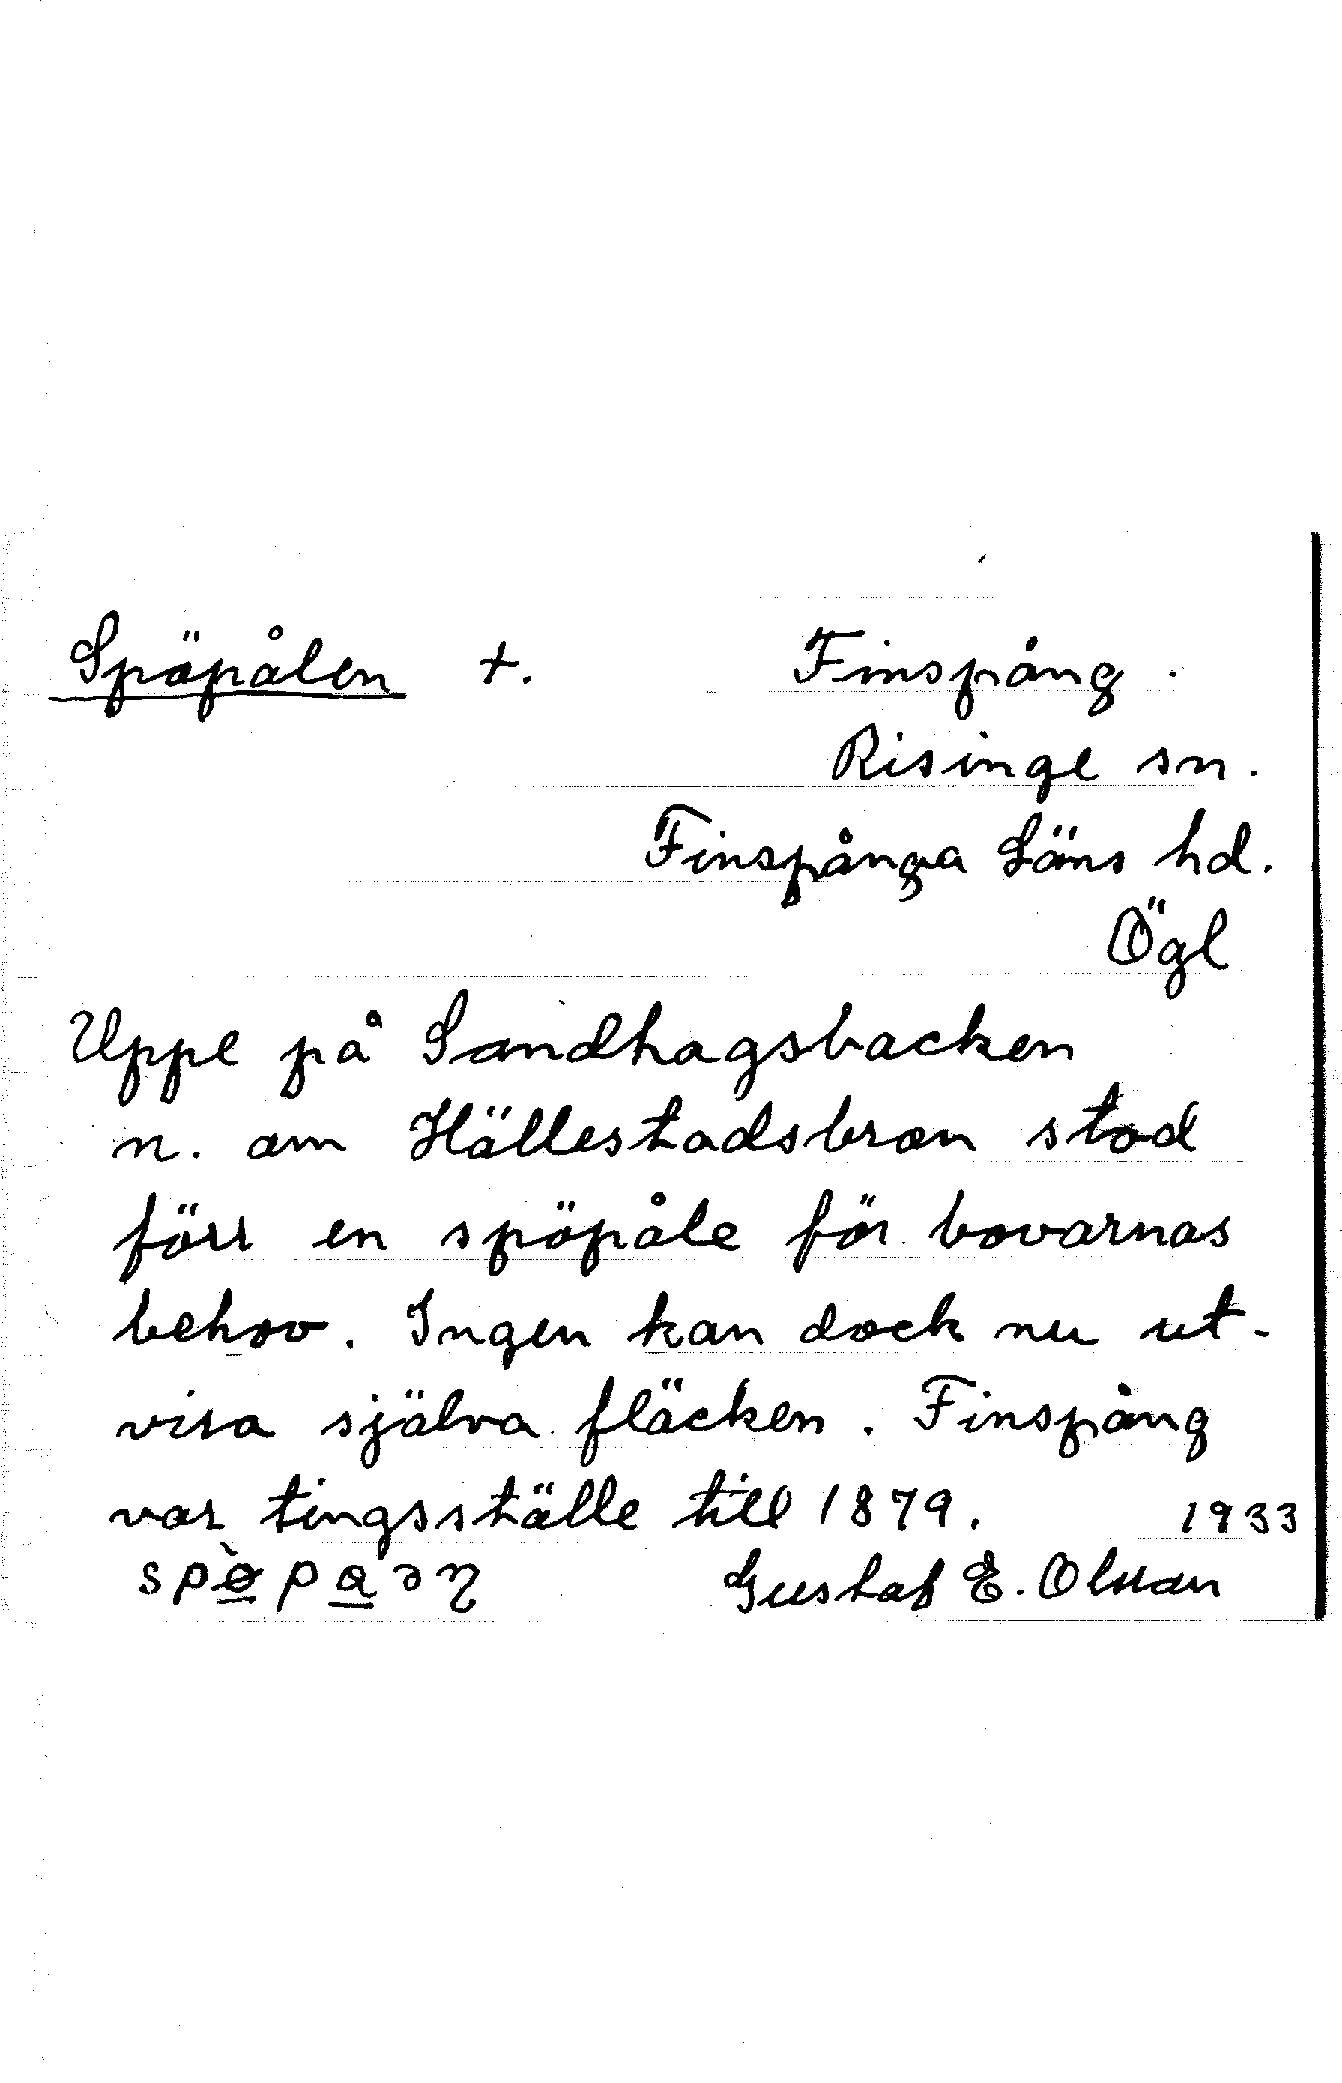 Spöpålen +. Finspång
Risinge sn.
Finspånga Läns hd.
Ögl
Uppe på Sandhagsbacken
n. om Hällestadsbron stod
förr en spöpåle för bovarnas
behov. Ingen kan dock nu ut-
visa själva fläcken. Finspång
var tingsställe till 1879. 1933
Gustaf E. Olsson